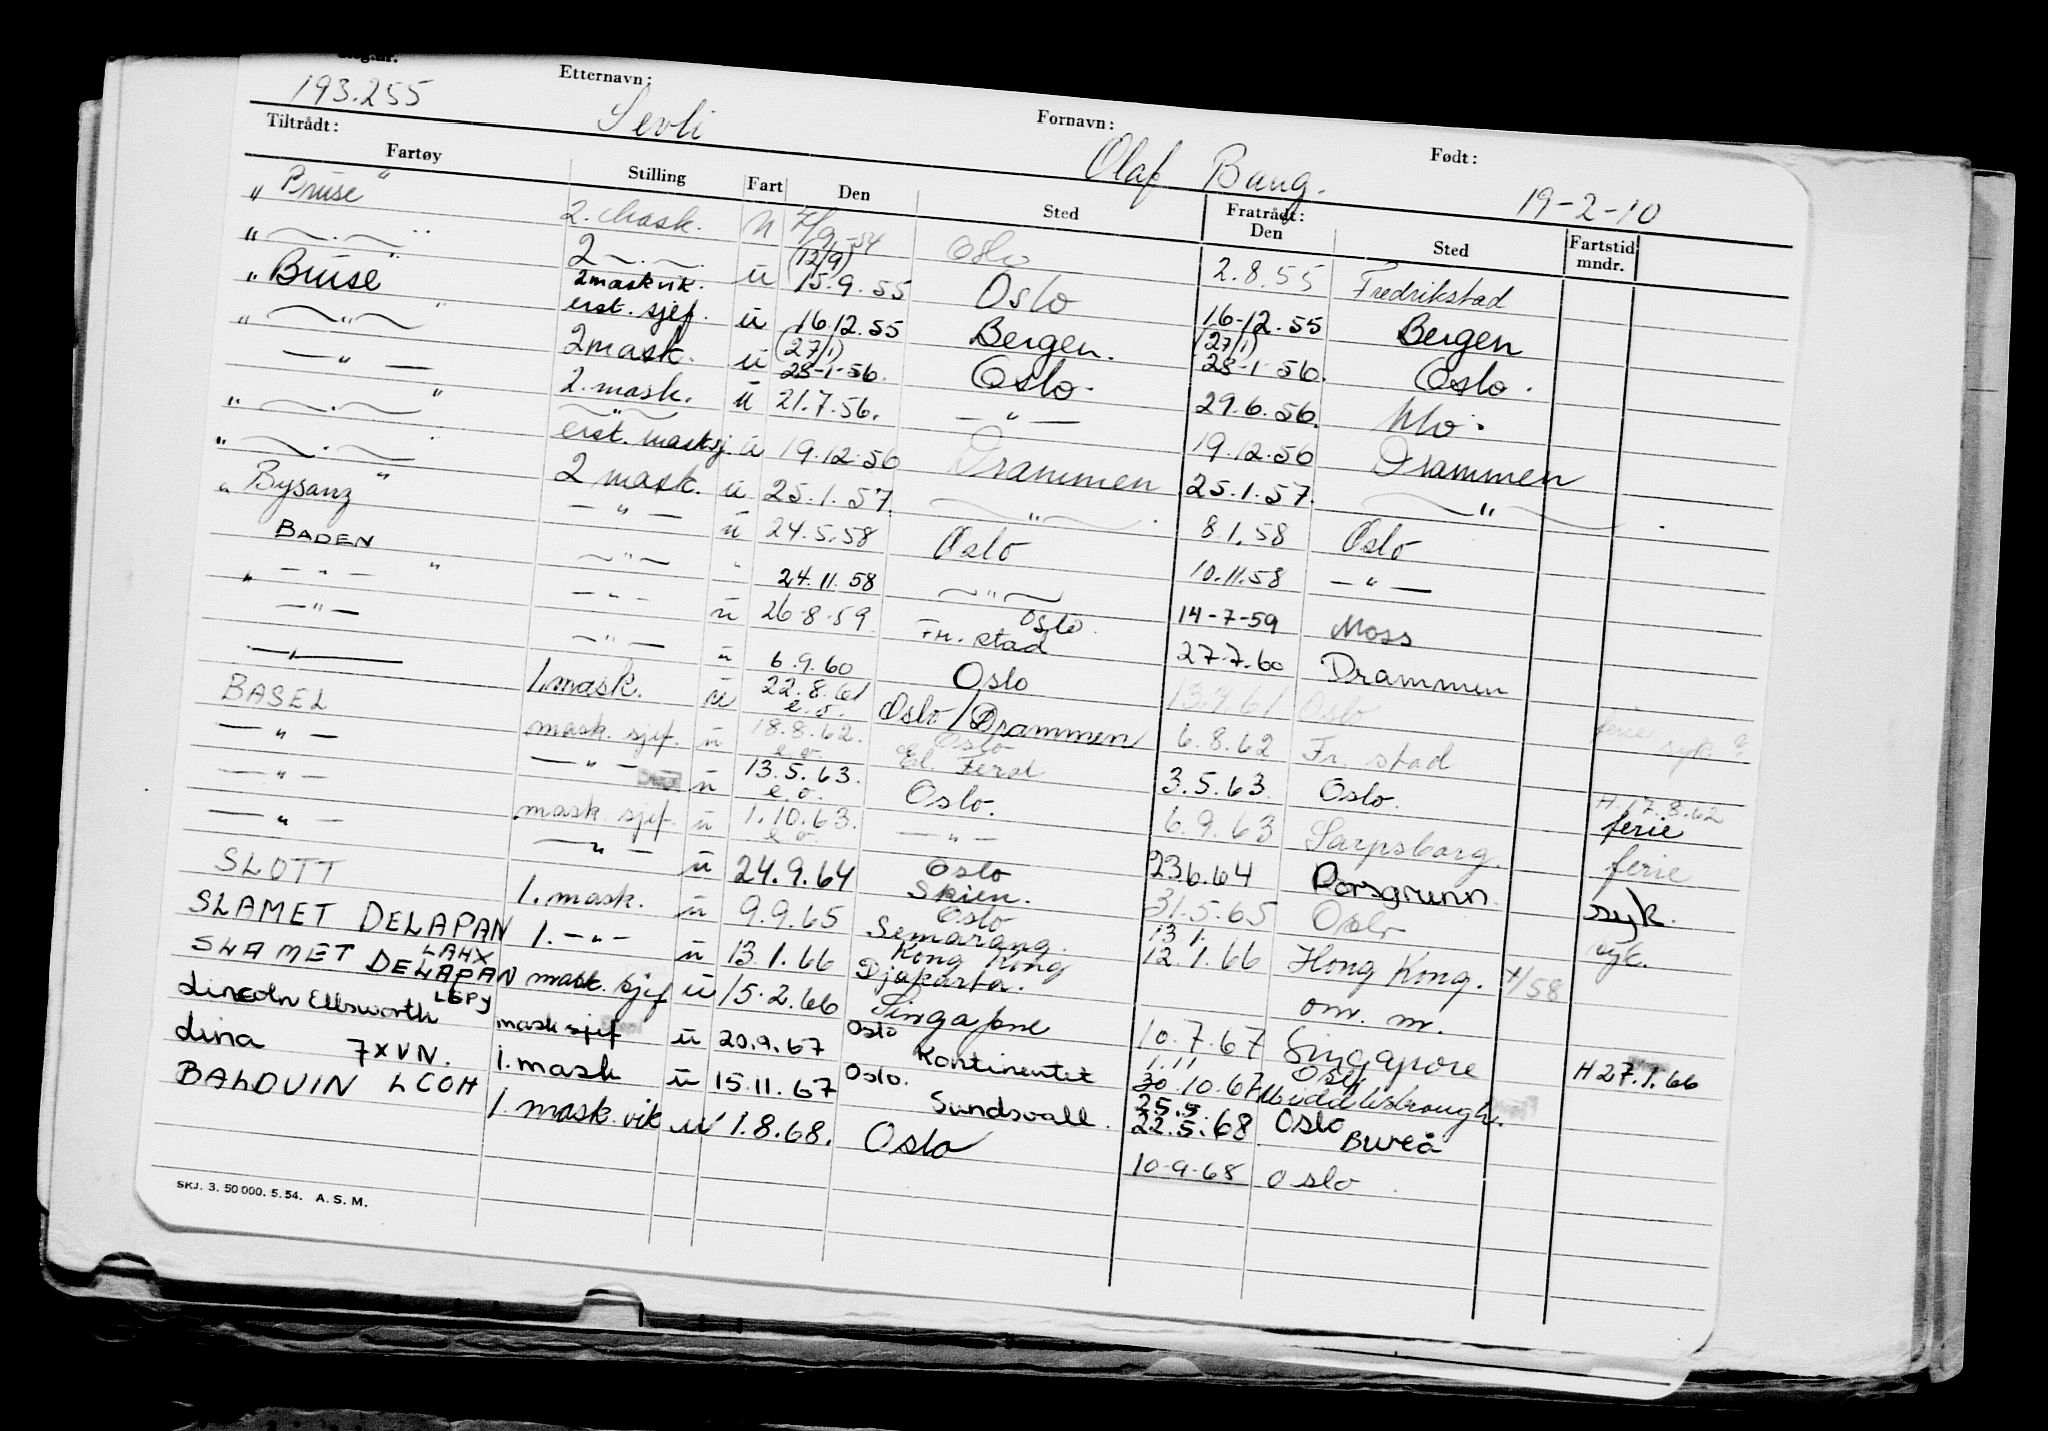 193.255 Etternavn: Sevli Fornavn: Olaf Bang. Født: 19-2-10
Tiltrådt: Fratrådt:
Fartøy Stilling Fart Den Sted Den Sted Fartstid mndr.
„ Bruse " 2. Mask. u 54 Oslo 2.8.55 Fredrikstad
„ — . — " 2 — . — (12/9) u 15.9.55 Oslo 16-12.55 Bergen
„ Bruse " 2maskvik. erst. sjef. u 16.12.55 Bergen. (27/1) 28-1-56. Oslo.
„ — " — 2mask. u (27/1) 28-1-56. Oslo. 29.6.56. Mo.
— " — " 2. mask. u 21.7.56. — " — 19.12.56 Drammen
„ — . — " — " — erst. masksj u 19.12.56 Drammen 25.1.57. — " — .
„ — . — " 2 mask. u 25.1.57. — " — . 8.1.58 Oslo
„ Bysanz — " — u 24.5.58 Oslo 10.11.58 — " —
BADEN " — " — " 24.11.58 — " — 14-7-59 Moss
„ — " — — " — u 26-8-59 Oslo. Fr. stad 27.7.60 Drammen
— " — — " — u 6.9.60 Oslo 13.7.61 Oslo ferie syk
— " — 1.mask. u 22.8.61 e.o. Oslo/Drammen 6.8.62 Fr. stad
BASEL mask. sjef. u 18.8.62. e.o. Oslo 3.5.63 Oslo. H. 17.8.62 ferie
— " — — " — u 13.5.63. e.o. Oslo. 6.9.63 Sarpsborg. ferie
— " — mask. sjef. u 1.10.63. e.o. — " — 23.6.64 Porsgrunn syk.
— " — — " — u 24.9.64 Oslo Skien. 31.5.65 Oslo syk.
SLOTT 1. mask. u 9.9.65 Oslo Semarang. 13.1. 12.1.66 Hong Kong.
SLAMET DELAPAN LAHX 1. — " — u 13.1.66 Kong Kong Djakarta. om. m.
SLAMET DELAPAN mask. sjef u 15.2.66 Singapore 10.7.67 Singapore H 27.1.66
Lincoln Ellsworth LEPJ mask sjef u 20.9.67 Oslo Kontinentet 1.11 30.10.67 Oslo Middlesbrough.
Lina 7XVN. 1. mask u 15.11.67 Oslo. Sundsvall. 25.5. 22.5.68 Oslo Bureå
BALDUIN LCOH 1. mask. vik u 1.8.68. Oslo 10-9-68 Oslo.
SKJ. 3. 50 000. 5. 54. A. S. M.